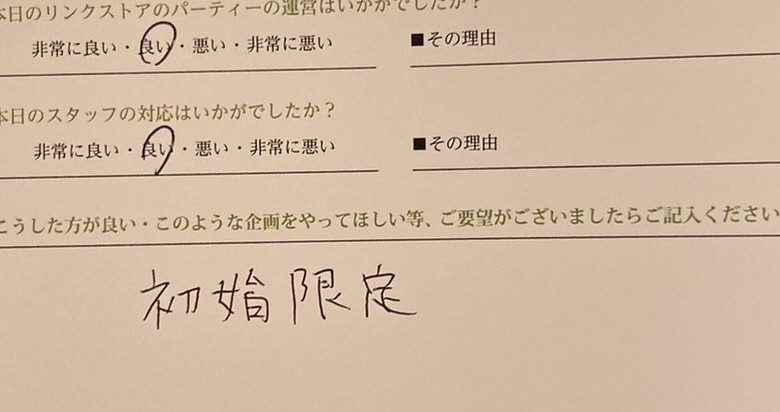 本日のリンクストアのパーティーの運営はいかがでしたか？
非常に良い・良い・悪い・非常に悪い ■その理由
本日のスタッフの対応はいかがでしたか？
非常に良い・良い・悪い・非常に悪い ■その理由
こうした方が良い・このような企画をやってほしい等、ご要望がございましたらご記入ください
初婚限定